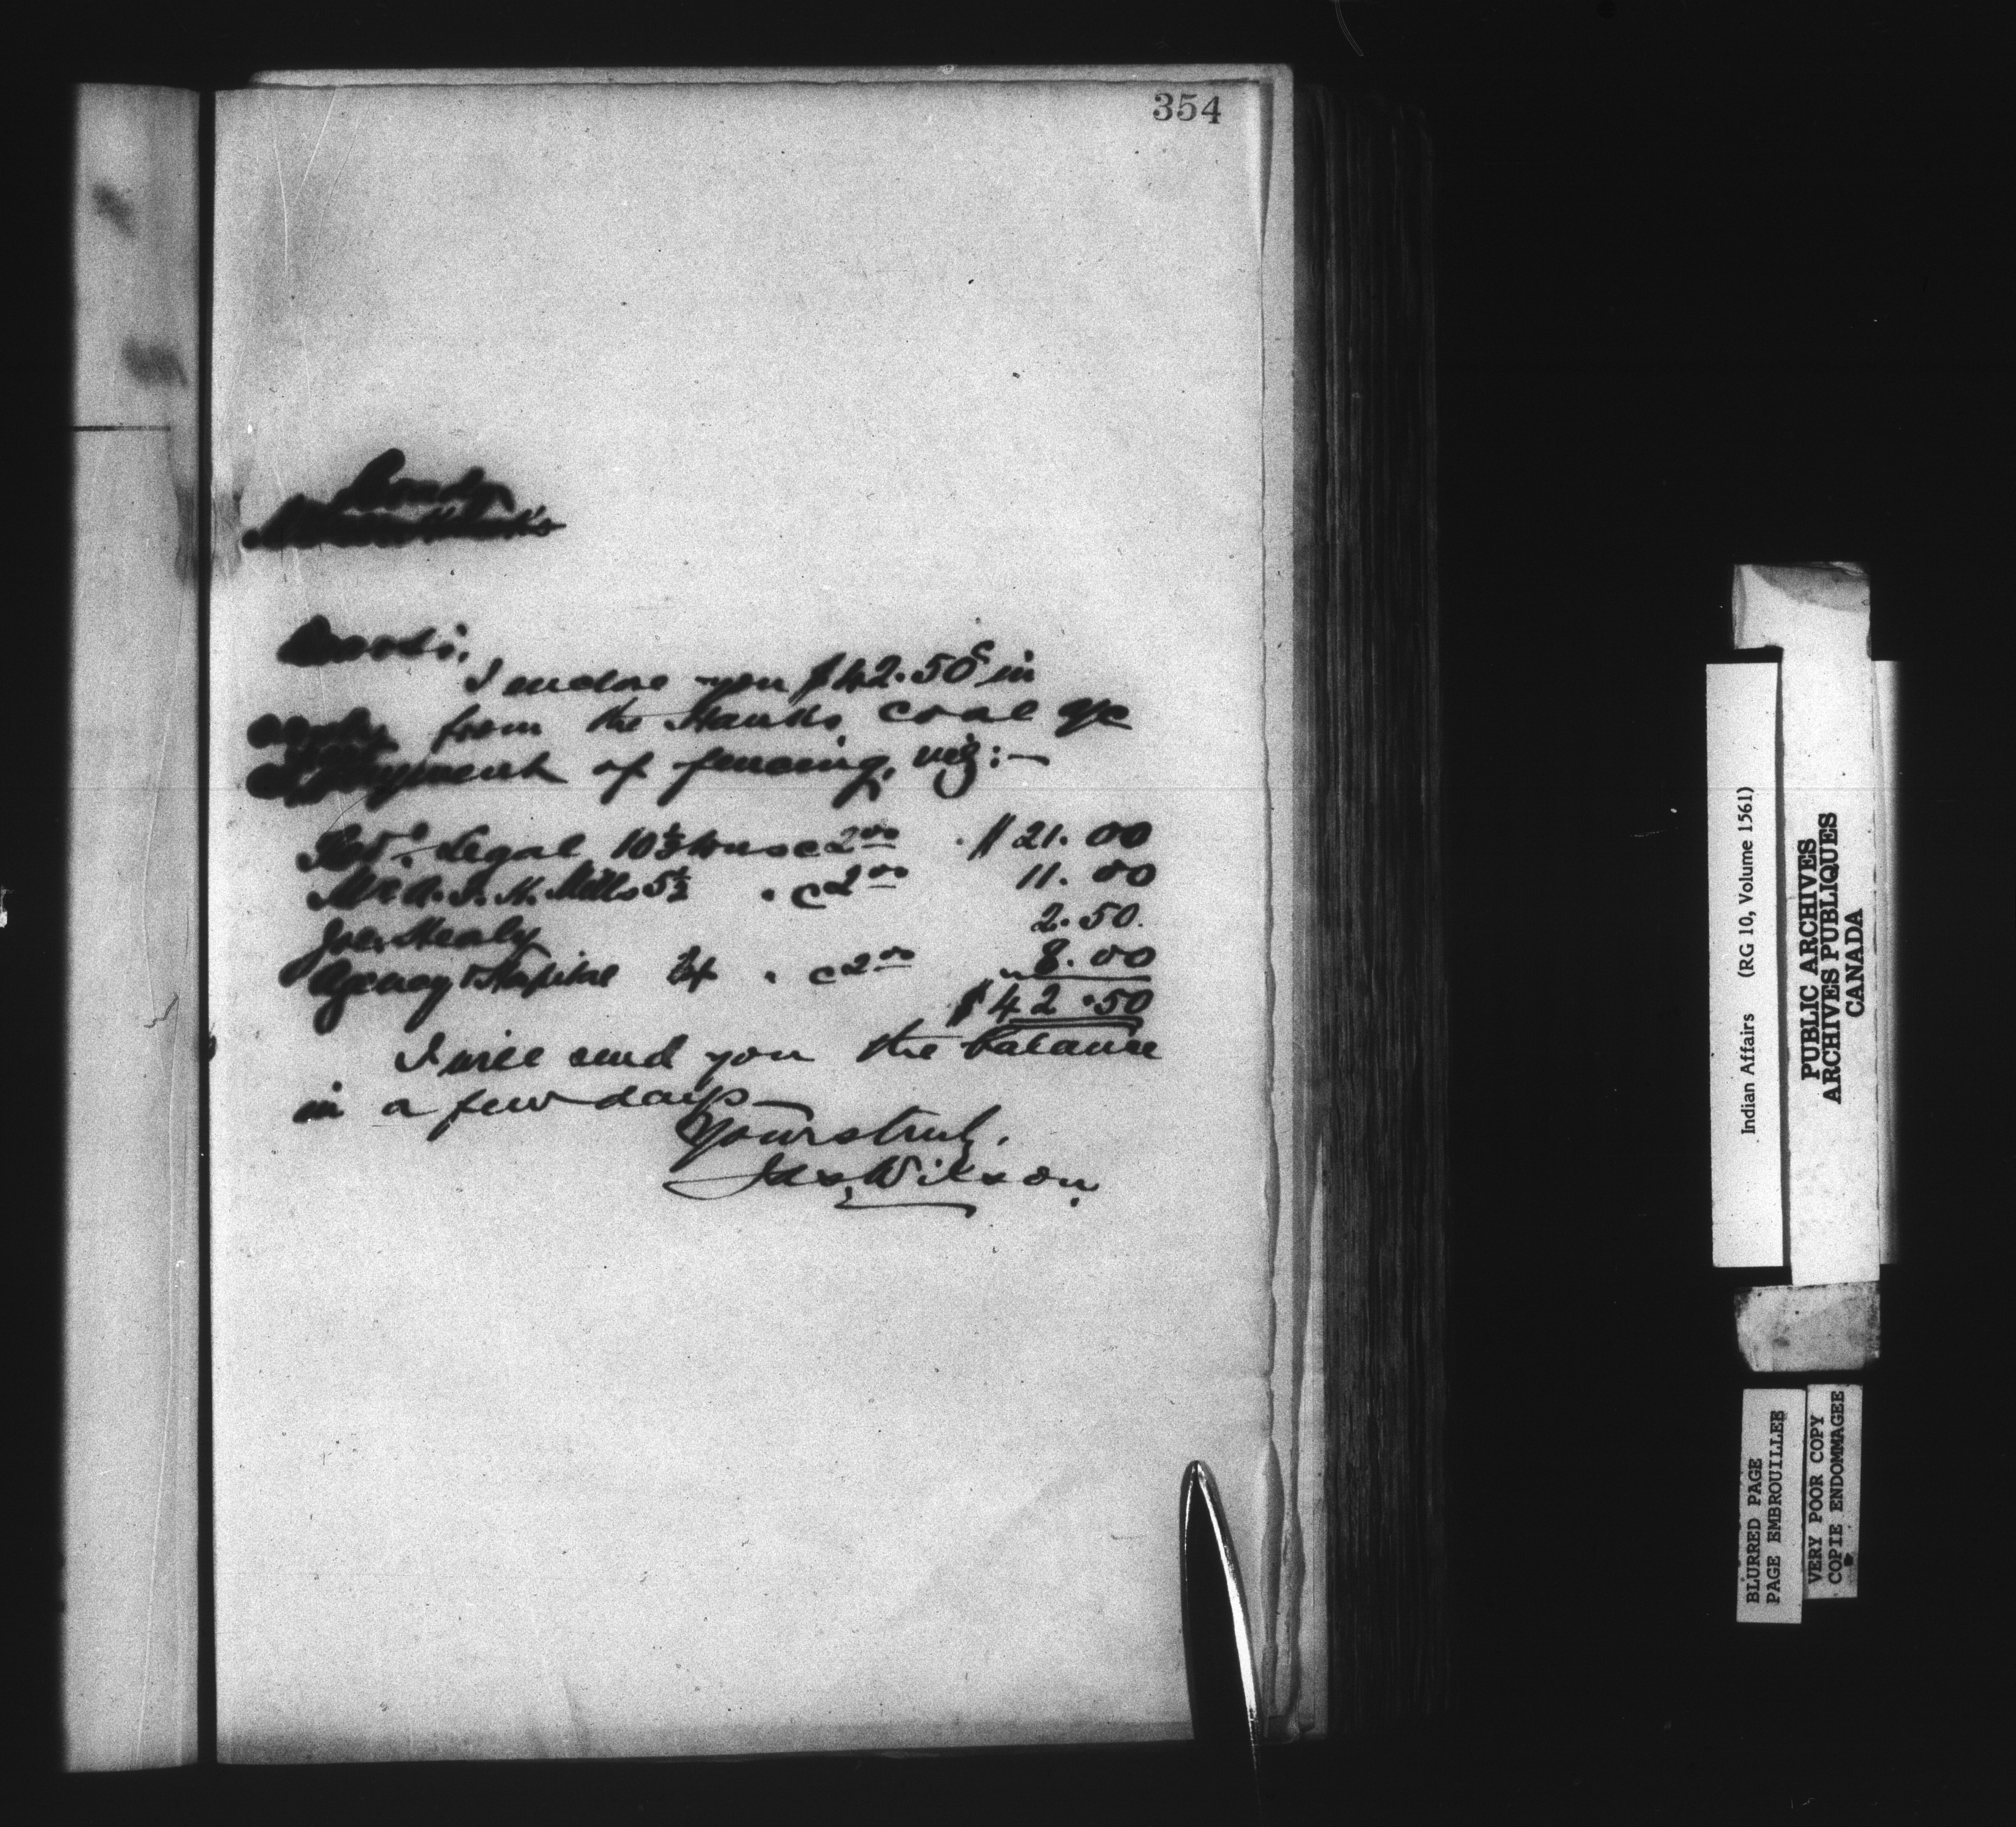 354
I enclose you $42.50c in
from the Hawks coal a/c
payment of fencing, viz:—
Revd. Legal 10½ tons @ 2.00 $21.00
Mr A. J. N. Mills 5½ " @ 2.00 11.00
Joe Healy 2.50.
Agency Hospital 4 " @ 2.00 8.00
$42.50
I will send you the balance
in a few days —
Yours truly,
Jas. Wilson.
Indian Affairs (RG 10, Volume 1561)
PUBLIC ARCHIVES
ARCHIVES PUBLIQUES
CANADA
BLURRED PAGE
PAGE EMBROUILLEE
VERY POOR COPY
COPIE ENDOMMAGEE